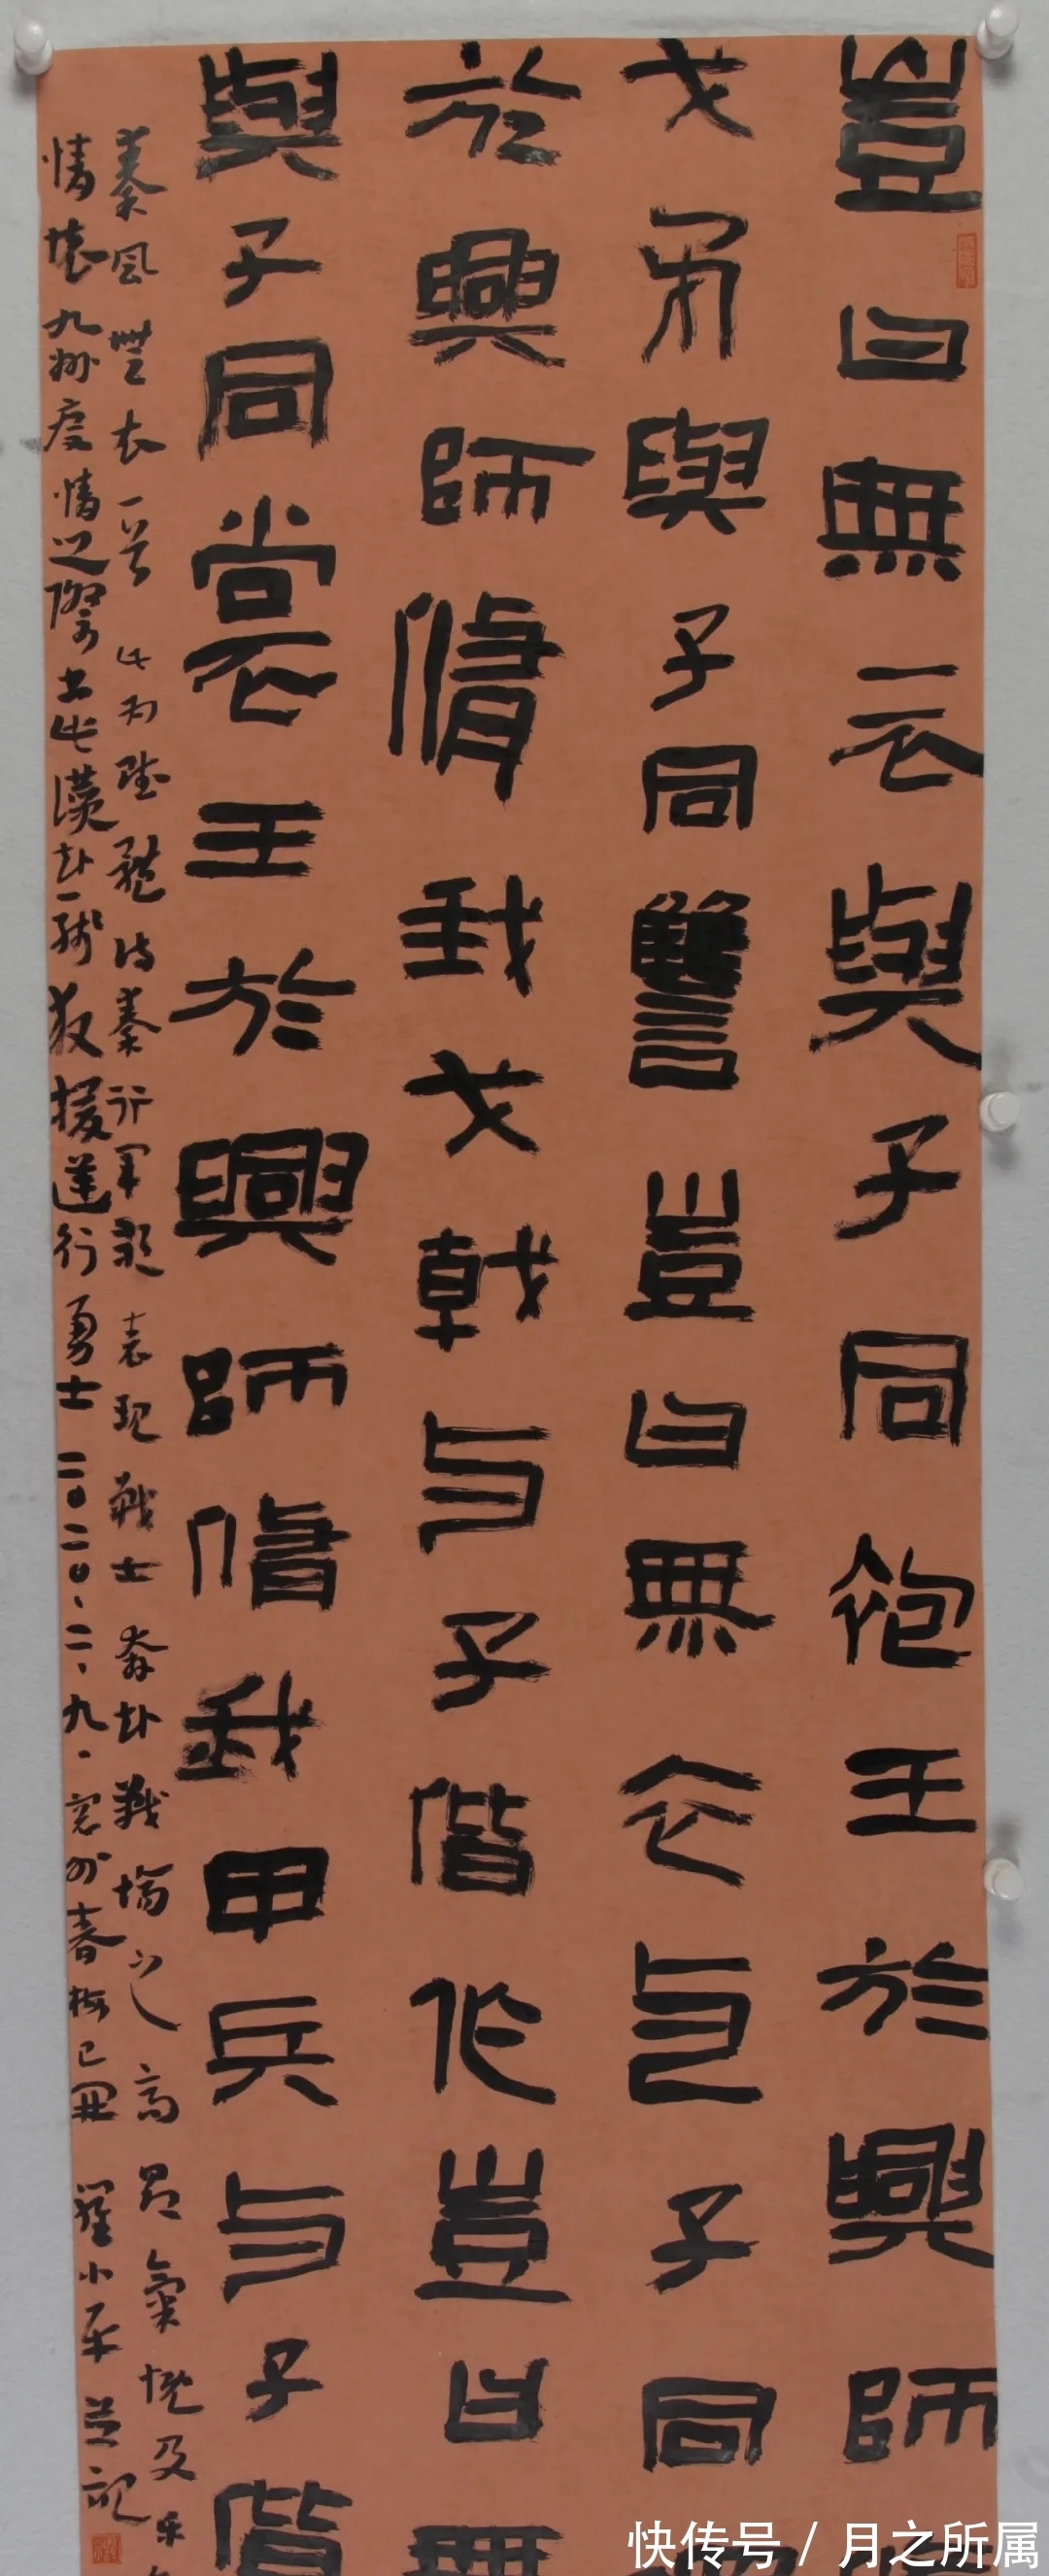 豈曰無衣與子同袍王於興師
戈矛與子同讐豈曰無衣与子同
於興師脩我戈戟与子偕作豈曰無
與子同裳王於興師脩我甲兵与子偕
秦风無衣一首 此为诗秦行军歌表现戰士奔赴戰場之高昂氣慨及乐
情懷九州疫情之際书此赴一线救援逆行勇士 二〇二〇、二、九、窓外春梅已開 翟小平并记
快传号 / 月之所属